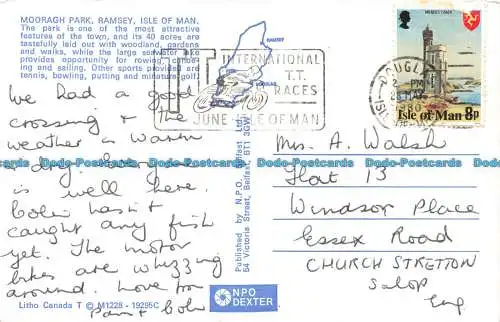 MOORAGH PARK, RAMSEY, ISLE OF MAN.
The park is one of the most attractive
features of the town, and its 40 acres are
tastefully laid out with woodland, gardens
and walks, while the large sea water lake
provides opportunity for rowing, canoe-
ing and sailing. Other sports provided are
tennis, bowling, putting and miniature golf.
RAMSEY
DOUGLAS
TT
INTERNATIONAL
T.T.
RACES
JUNE ISLE OF MAN
DOUGLAS
PM
1980
ISLE OF MAN
Isle of Man 8p
We had a good
crossing & the
weather is warm
& dry. Everyone
is well here.
Colin hasn't
caught any fish
yet. The motor
bikes are whizzing
around. Love from
Pam & Colin
Mrs. A. Walsh
Flat 13
Windsor Place
Essex Road
CHURCH STRETTON
Salop
Eng
Published by N.P.O. Belfast Ltd.,
64 Victoria Street, Belfast, BT1 3GW
NPO
DEXTER
Litho Canada T © M1228 - 19295C
Bodo-Postcards Bodo-Postcards Bodo-Postcards Bodo-Postcards Bodo-Postcards